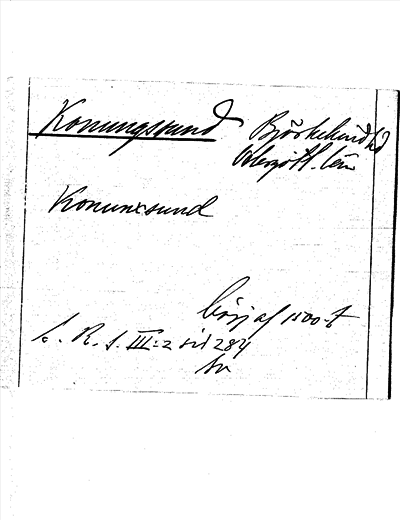 Konungssund Björkekind hd
Östergötl. län
Konunxsund
börj af 1500-t
S. R. S. III:2 sid 284